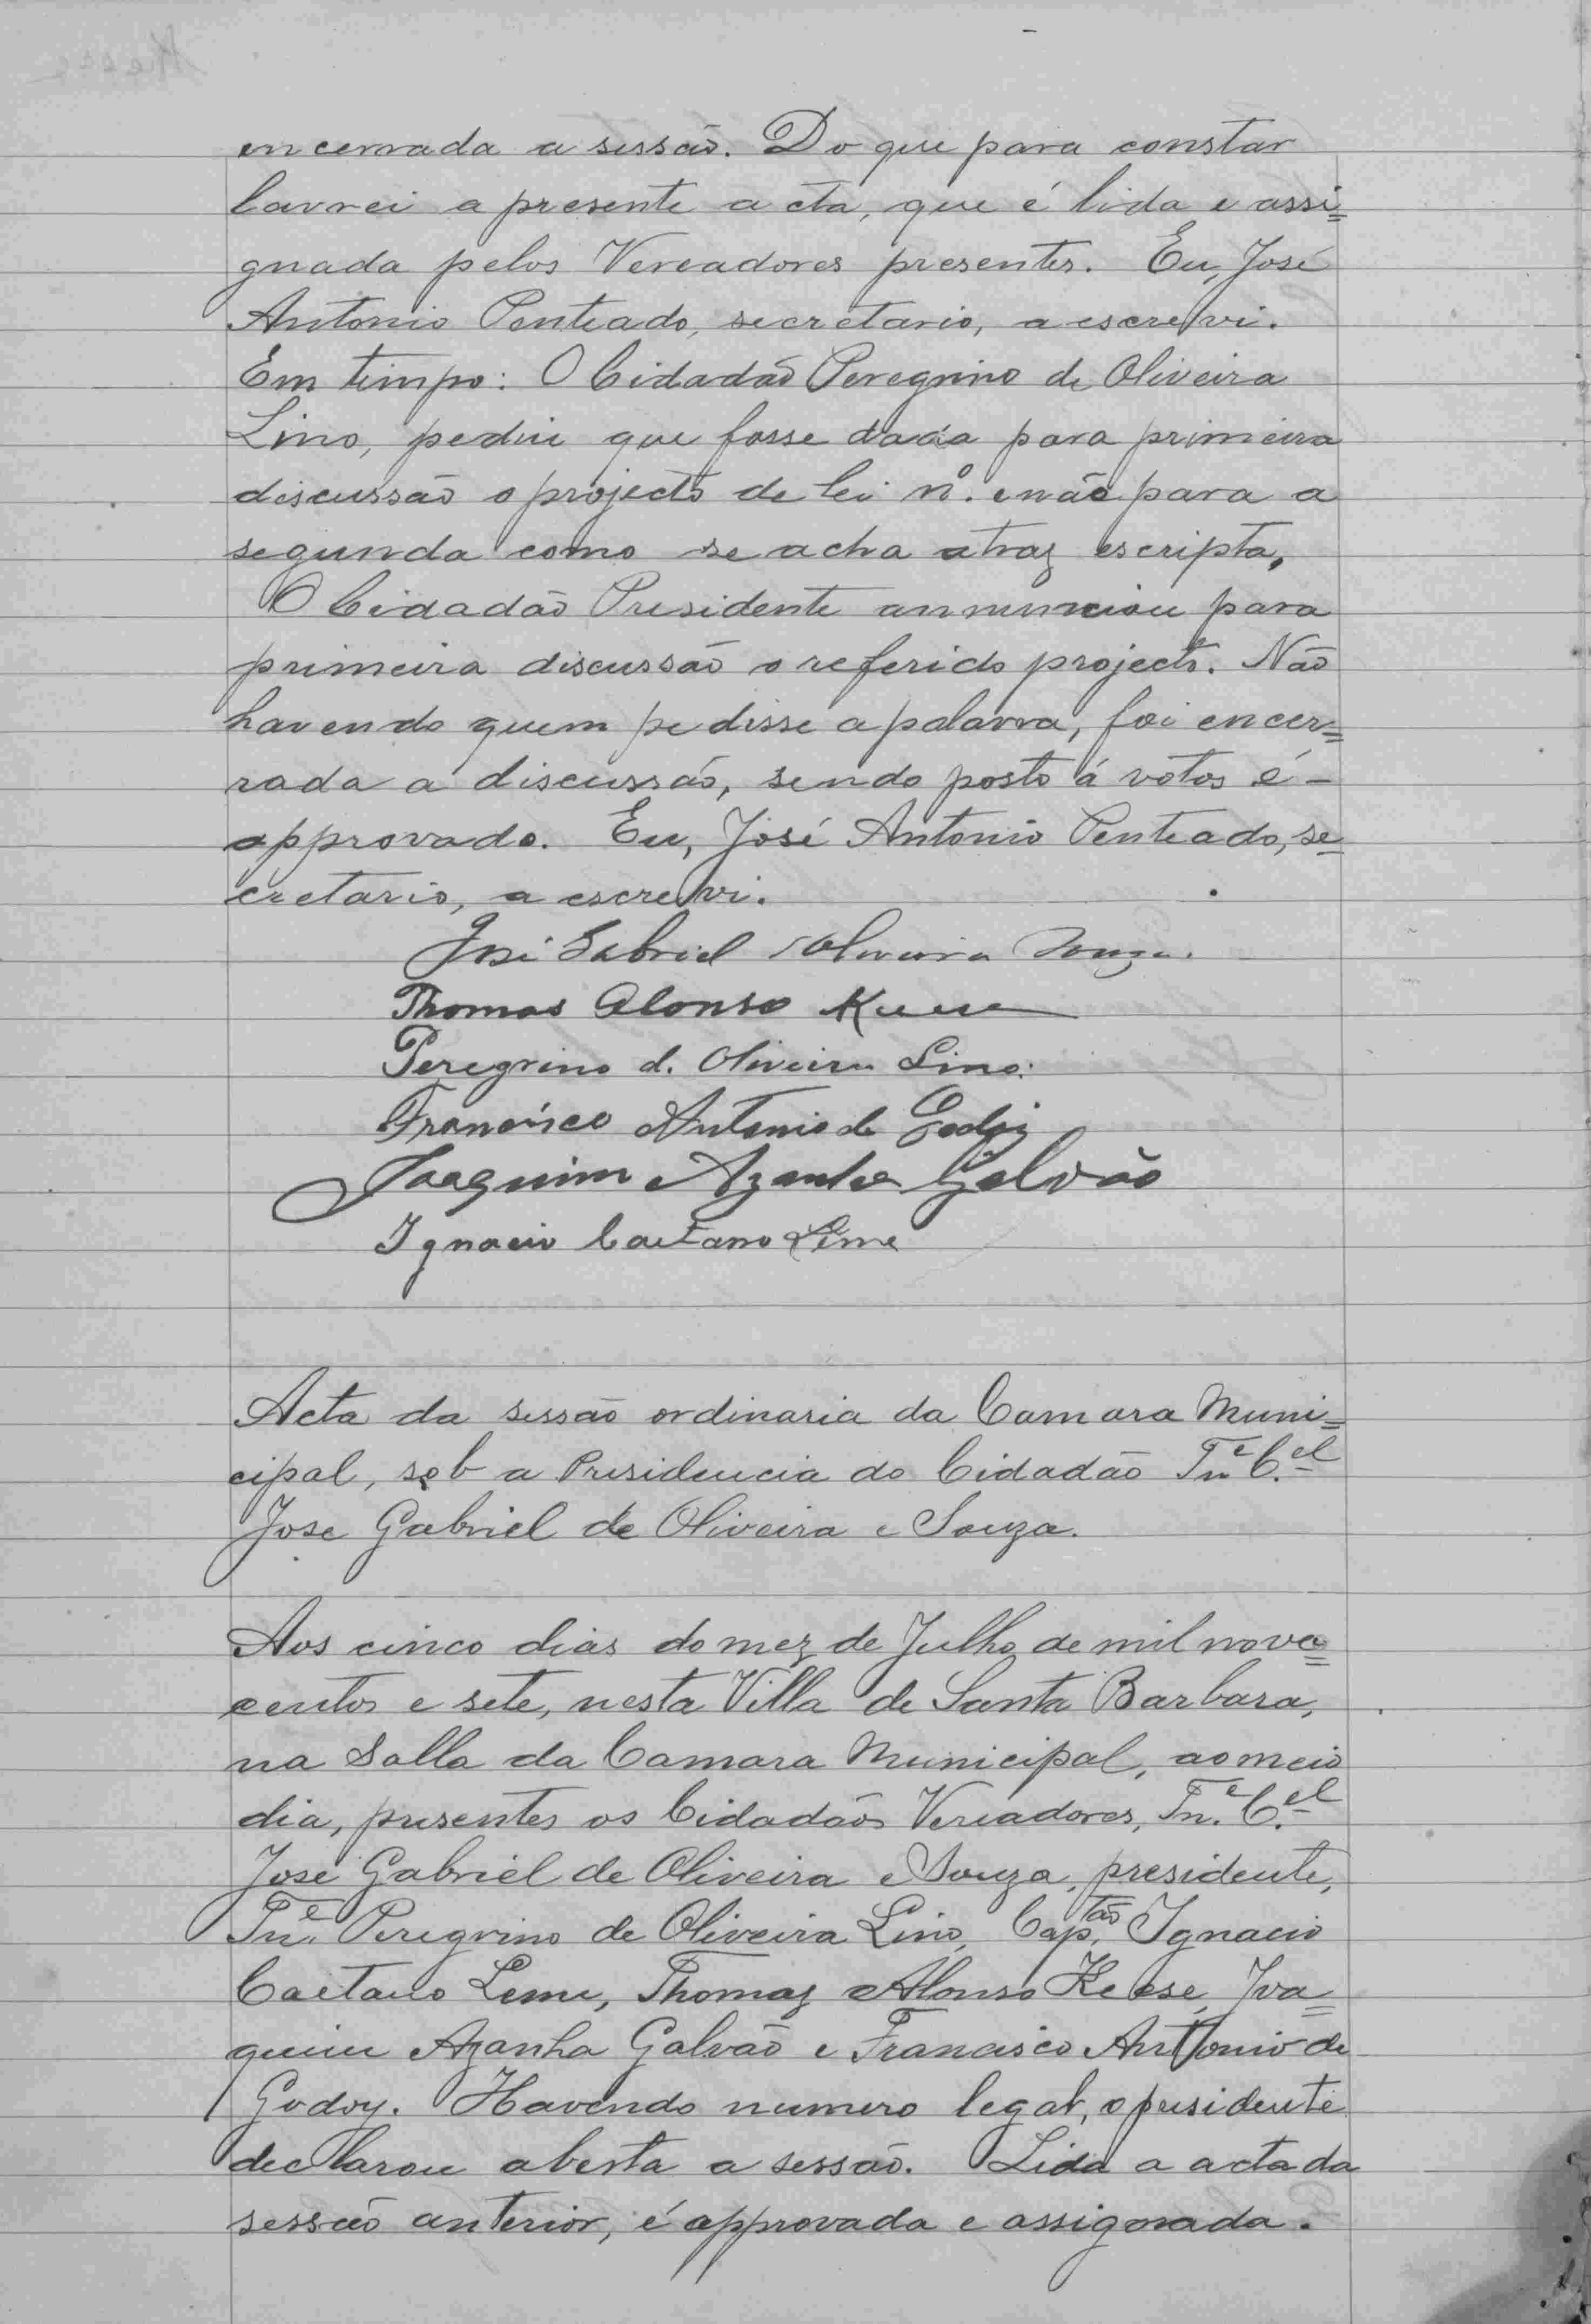 encerrada a sessão. Do que para constar
lavrei a presente acta, que é lida e assi=
gnada pelos Vereadores presentes. Eu, José
Antonio Penteado, secretario, a escrevi.
Em tempo: O Cidadão Peregrino de Oliveira
Lino, pediu que fosse dada para primeira
discussão o projecto de lei nº. e não para a
segunda como se acha atraz escripta.
O Cidadão Presidente annunciou para
primeira discussão o referido projecto. Não
havendo quem pedisse a palavra, foi encer=
rada a discussão, sendo posto á votos é -
approvado. Eu, José Antonio Penteado, se=
cretario, a escrevi.
José Gabriel Oliveira Souza.
Thomas Alonso Keese
Peregrino d. Oliveira Lino.
Francisco Antonio de Godoy
Joaquim Azanha Galvão
Ignacio Caetano Leme
Acta da sessão ordinaria da Camara Muni=
cipal, sob a Presidencia do Cidadão Tne. Cel.
Jose Gabriel de Oliveira e Souza.
Aos cinco dias do mez de Julho de mil nove=
centos e sete, nesta Villa de Santa Barbara,
na Salla da Camara Municipal, ao meio
dia, presentes os Cidadãos Vereadores, Tne. Cel.
José Gabriel de Oliveira e Souza, presidente,
Tne. Peregrino de Oliveira Lino, Cap.tão Ignacio
Caetano Leme, Thomaz Alonso Keese, Joa=
quim Azanha Galvão e Francisco Antonio de
Godoy. Havendo numero legal, o presidente
declarou aberta a sessão. Lida a acta da
sessão anterior, é approvada e assignada.